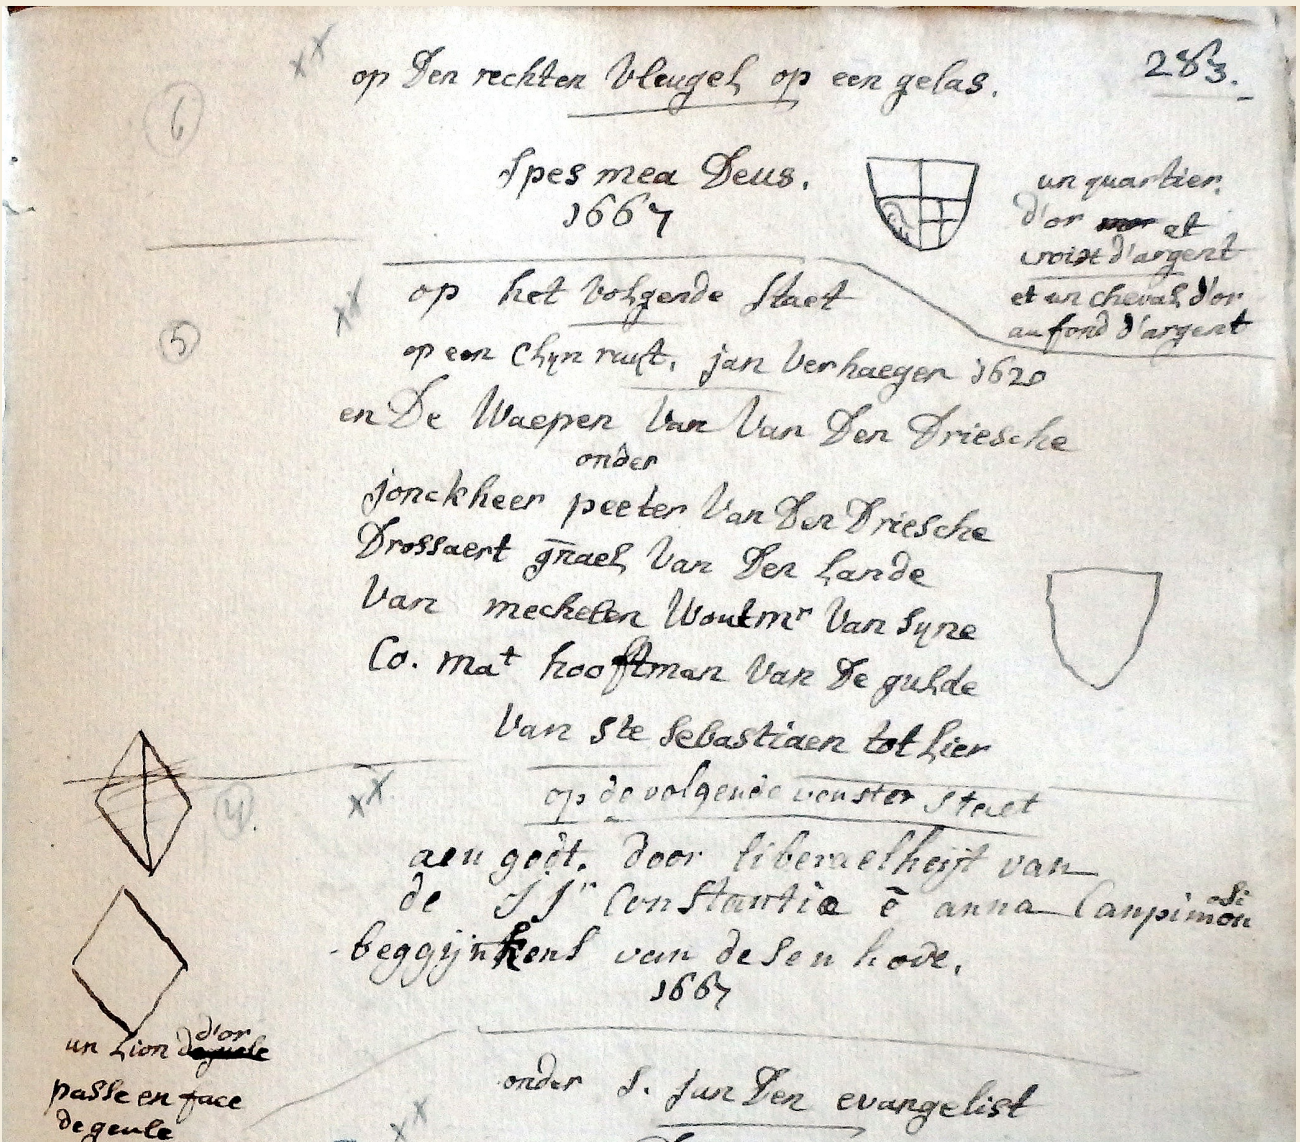 op Den rechten Vleugel op een gelas.
283.
6
Spes mea Deus.
1667
un quartier
d'or et
croix d'argent
et un cheval d'or
au fond d'argent
op het volgende staet
5
op een Clyn ruyt. jan Verhaegen 1620
en De Waepen Van Van Den Driesche
onder
jonckheer peeter Van Den Driesche
Drossaert gn̄ael Van Den Lande
Van mechelen Woutmr Van Syne
Co. mat hooftman Van De gulde
Van Ste Sebastiaen tot Lier
4
op de volgende venster staet
aen godt. door liberaelheyt van
de JJr Constantia ē anna
beggijnkens van desen hove.
1667
un Lion d'or
passe en face
de geule
onder S. jan Den evangelist